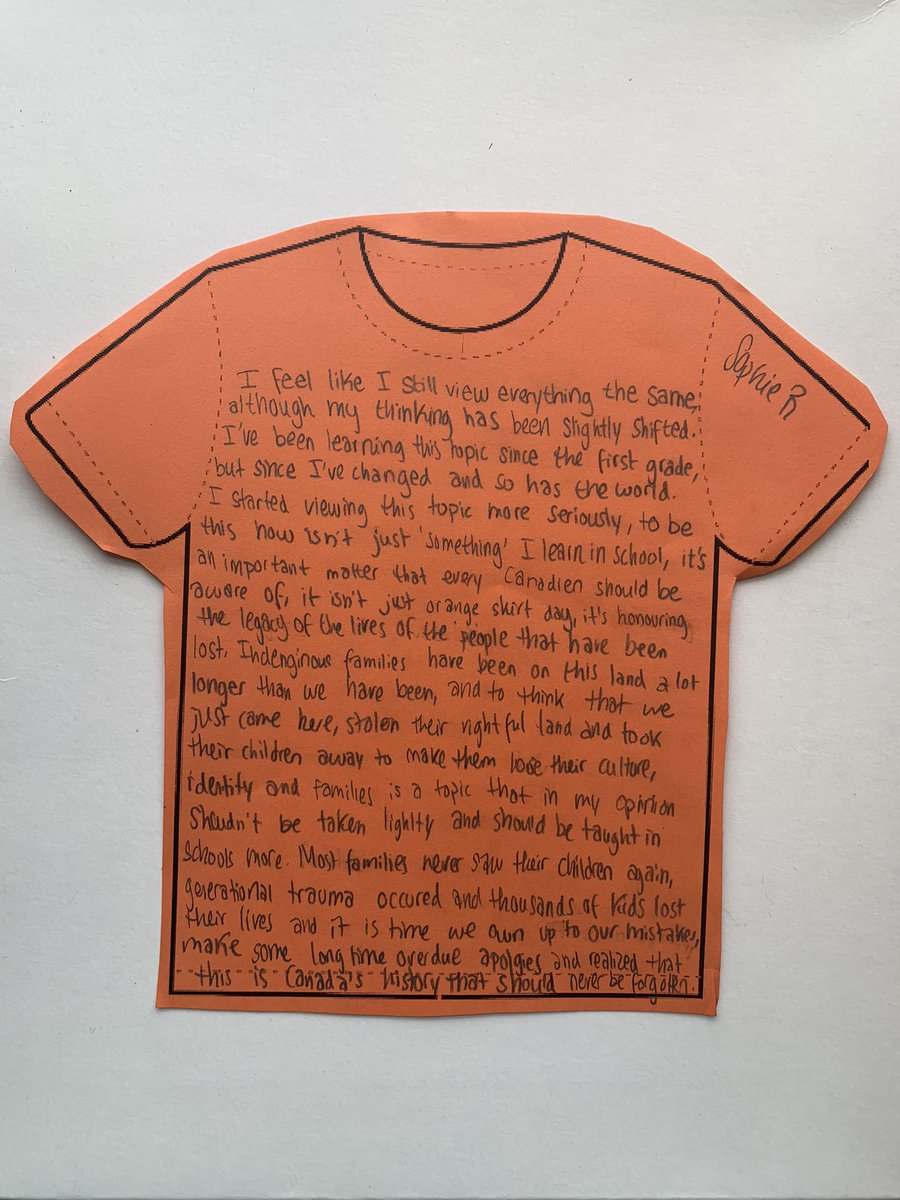 Sophie R
I feel like I still view everything the same,
although my thinking has been slightly shifted.
I've been learning this topic since the first grade,
but since I've changed and so has the world.
I started viewing this topic more seriously, to be
this now isn't just 'something' I learn in school, it's
an important matter that every Canadien should be
aware of, it isn't just orange shirt day, it's honouring
the legacy of the lives of the people that have been
lost. Indenginous families have been on this land a lot
longer than we have been, and to think that we
just came here, stolen their rightful land and took
their children away to make them lose their culture,
identity and families is a topic that in my opinion
Shoudn't be taken lighlty and should be taught in
schools more. Most families never saw their children again,
generational trauma occured and thousands of kids lost
their lives and it is time we own up to our mistakes,
make some long time overdue apolgies and realized that
this is Canada's history that should never be forgotten.